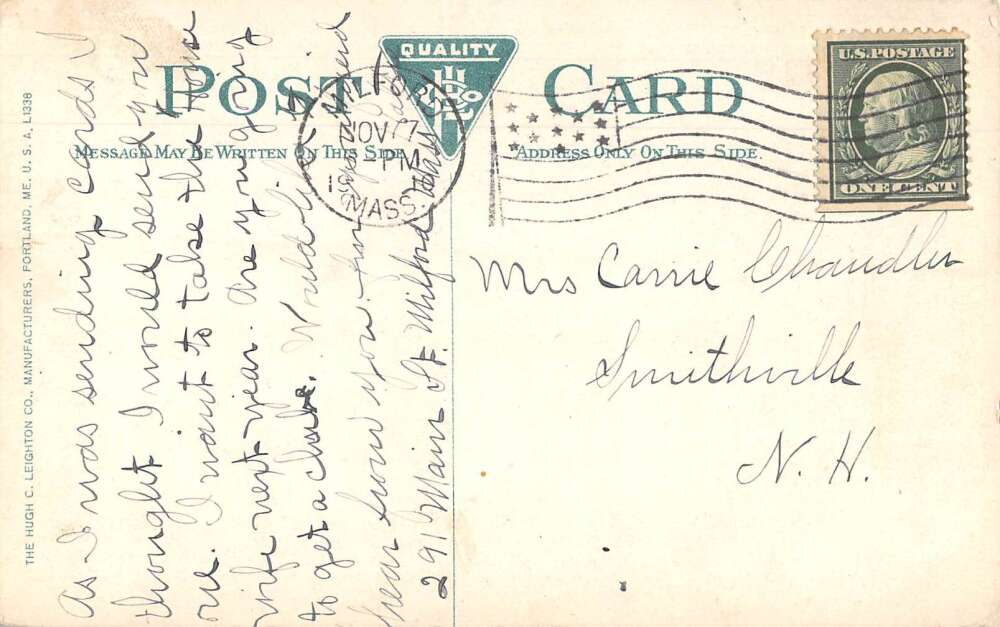 POST CARD
QUALITY
MESSAGE MAY BE WRITTEN ON THIS SIDE
ADDRESS ONLY ON THIS SIDE.
U.S. POSTAGE
ONE CENT
MILFORD
NOV 7
PM
MASS.
Mrs Carrie Chandler
Smithville
N. H.
As I was sending cards I
thought I would send you
one. I want to take the House
wife next year. Are you going
to get a club. Would like to
hear from you
291 Main St. Milford Mass
THE HUGH C. LEIGHTON CO., MANUFACTURERS, PORTLAND, ME. U. S. A. L1338